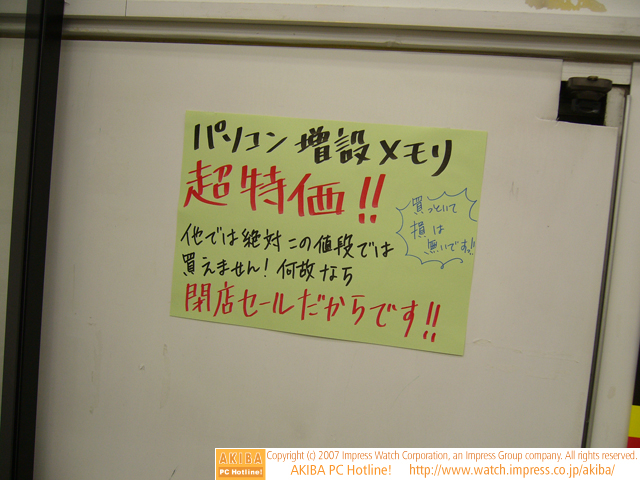 パソコン増設メモリ
超特価!!
買っといて
損は
無いです!!
他では絶対この値段では
買えません!何故なら
閉店セールだからです!!
AKIBA
PC Hotline!
Copyright (c) 2007 Impress Watch Corporation, an Impress Group company. All rights reserved.
AKIBA PC Hotline! http://www.watch.impress.co.jp/akiba/